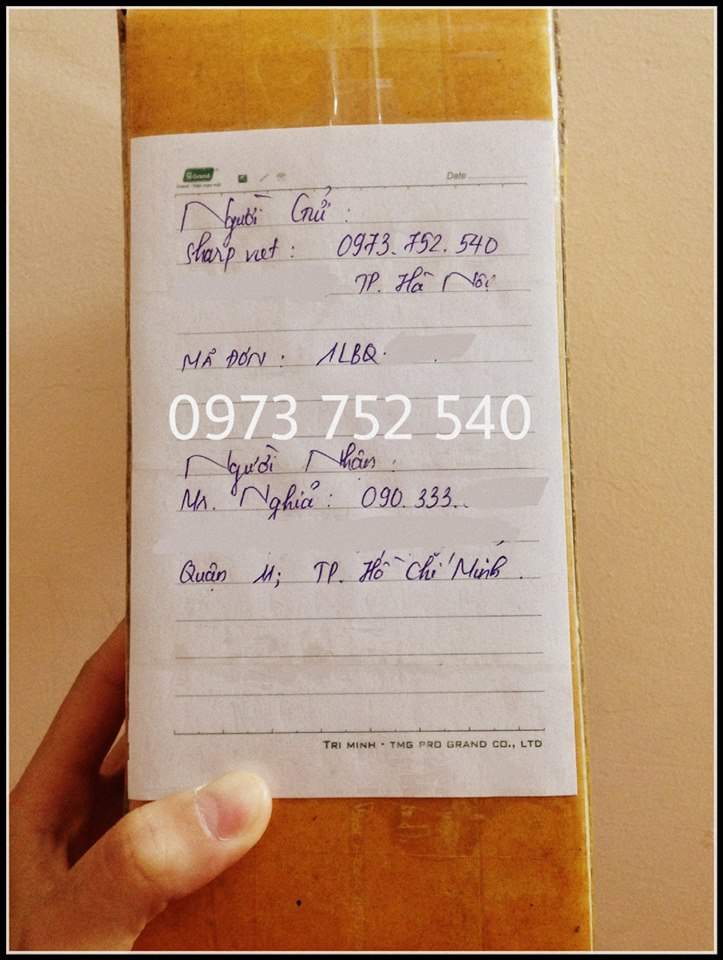 Grand
Date
Người Gửi :
Sharp viet : 0973.752.540
TP. Hà Nội
MÃ ĐƠN : 1LBQ.
0973 752 540
Người Nhận :
Mr. Nghiả : 090.333..
Quận 11; TP. Hồ Chí Minh.
TRI MINH - TMG PRO GRAND CO., LTD